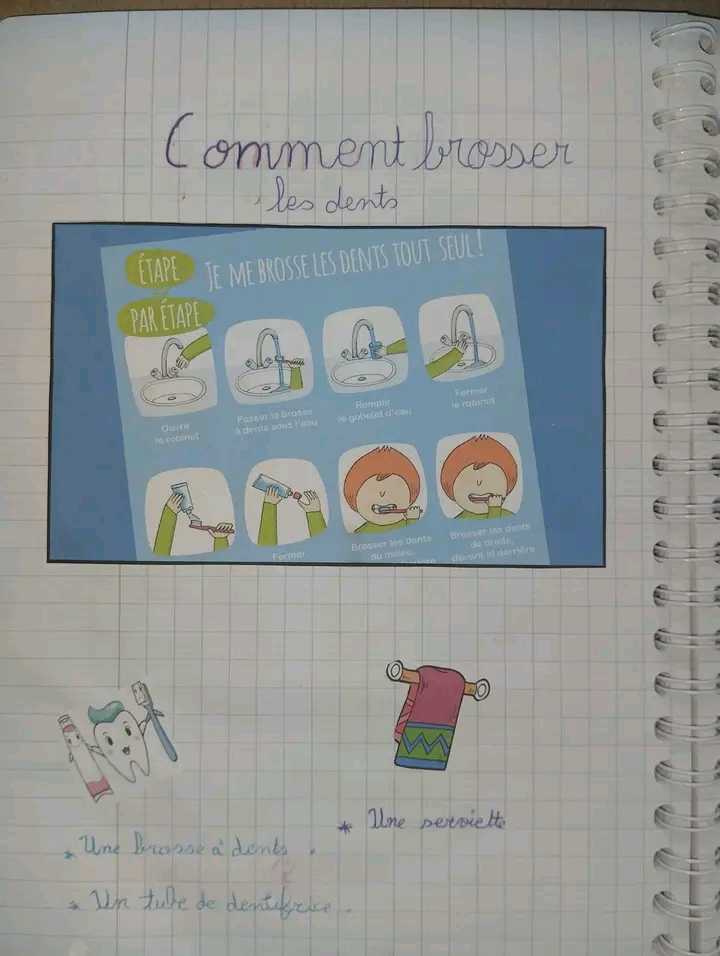 Comment brosser
les dents
ÉTAPE
PAR ÉTAPE
JE ME BROSSE LES DENTS TOUT SEUL !
Ouvrir
le robinet
Passer la brosse
à dents sous l'eau
Remplir
le gobelet d'eau
Fermer
le robinet
Fermer
Brosser les dents
du milieu,
Brosser les dents
de droite,
devant et derrière
* Une serviette
* Une brosse à dents.
* Un tube de dentifrice.